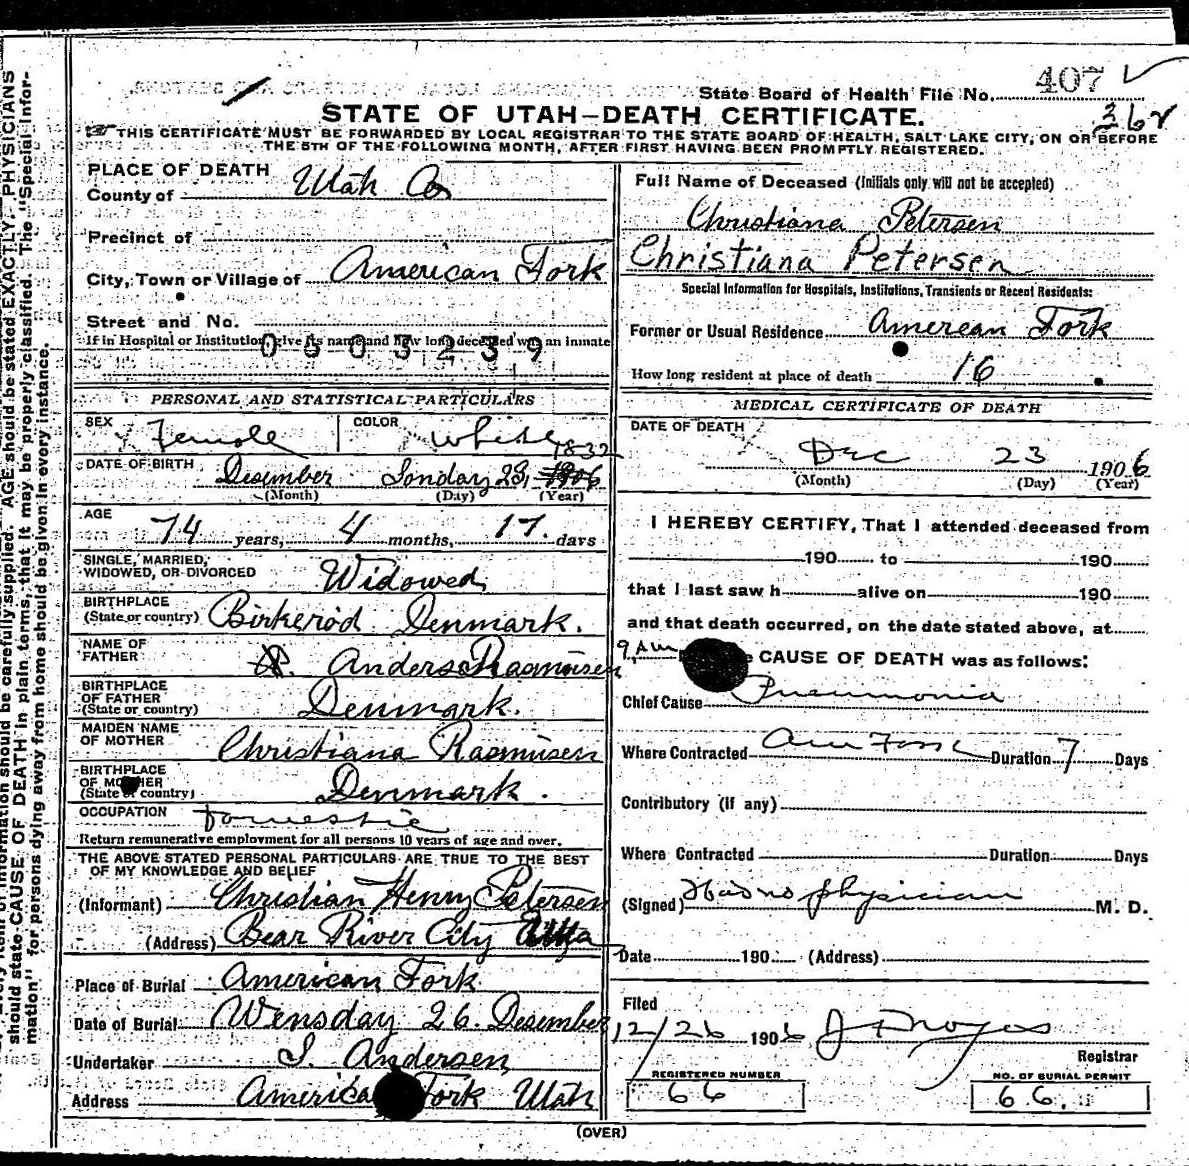 State Board of Health File No. 407
362
STATE OF UTAH—DEATH CERTIFICATE.
THIS CERTIFICATE MUST BE FORWARDED BY LOCAL REGISTRAR TO THE STATE BOARD OF HEALTH, SALT LAKE CITY, ON OR BEFORE
THE 5TH OF THE FOLLOWING MONTH, AFTER FIRST HAVING BEEN PROMPTLY REGISTERED.
PLACE OF DEATH
County of Utah Co
Precinct of
City, Town or Village of American Fork
Street and No.
If in Hospital or Institution, give its name and how long deceased was an inmate
0603239
PERSONAL AND STATISTICAL PARTICULARS
SEX Female COLOR White
1832
DATE OF BIRTH Desember Sonday 23, 1906
(Month) (Day) (Year)
AGE 74 years, 4 months, 17. days
SINGLE, MARRIED,
WIDOWED, OR DIVORCED Widowed
BIRTHPLACE
(State or country) Birkeröd Denmark.
NAME OF
FATHER Anders Rasmusen
BIRTHPLACE
OF FATHER
(State or country) Denmark.
MAIDEN NAME
OF MOTHER Christiana Rasmusen
BIRTHPLACE
OF MOTHER
(State or country) Denmark.
OCCUPATION Domestic
Return remunerative employment for all persons 10 years of age and over.
THE ABOVE STATED PERSONAL PARTICULARS ARE TRUE TO THE BEST
OF MY KNOWLEDGE AND BELIEF
(Informant) Christian Henry Petersen
(Address) Bear River City
Place of Burial American Fork
Date of Burial Wensday 26. Desember
Undertaker S. Andersen
Address American Fork Utah
Full Name of Deceased (Initials only will not be accepted)
Christiana Petersen
Christiana Petersen
Special Information for Hospitals, Institutions, Transients or Recent Residents:
Former or Usual Residence Amerean Fork
How long resident at place of death 16
MEDICAL CERTIFICATE OF DEATH
DATE OF DEATH
Dec 23 1906
(Month) (Day) (Year)
I HEREBY CERTIFY, That I attended deceased from
190 to 190
that I last saw h alive on 190
and that death occurred, on the date stated above, at
9 AM CAUSE OF DEATH was as follows:
Chief Cause Pneumonia
Where Contracted Am Fork Duration 7 Days
Contributory (if any)
Where Contracted Duration Days
(Signed) Had no physician M. D.
Date 190 (Address)
Filed
12/26 1906 J Noyes
Registrar
REGISTERED NUMBER
66
NO. OF BURIAL PERMIT
66.
(OVER)
item of information should be carefully supplied. AGE should be stated EXACTLY. PHYSICIANS
should state CAUSE OF DEATH in plain terms, that it may be properly classified. The "Special Infor-
mation" for persons dying away from home should be given in every instance.